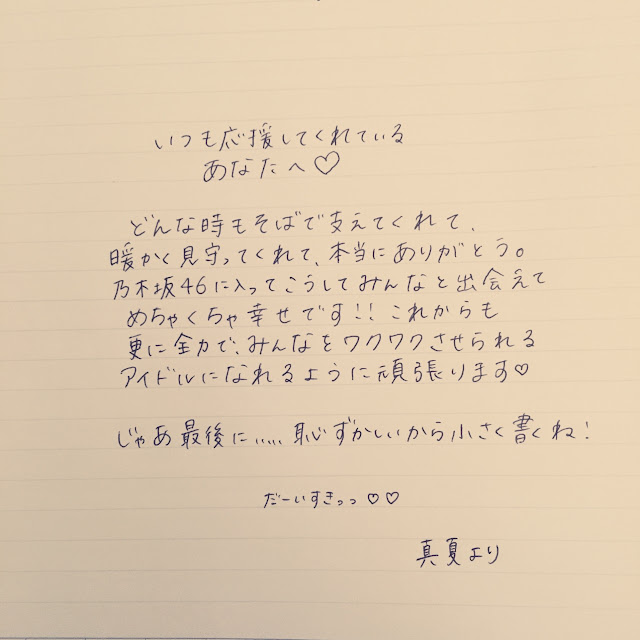 いつも応援してくれている
あなたへ♡
どんな時もそばで支えてくれて、
暖かく見守ってくれて、本当にありがとう。
乃木坂46に入ってこうしてみんなと出会えて
めちゃくちゃ幸せです!! これからも
更に全力で、みんなをワクワクさせられる
アイドルになれるように頑張ります♡
じゃあ最後に…… 恥ずかしいから小さく書くね!
だーいすきっっ♡♡
真夏より